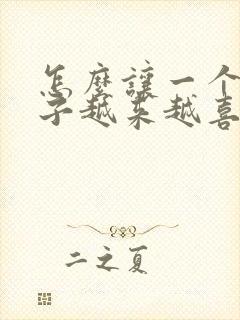 怎麼讓一个
子越来越喜
二之夏